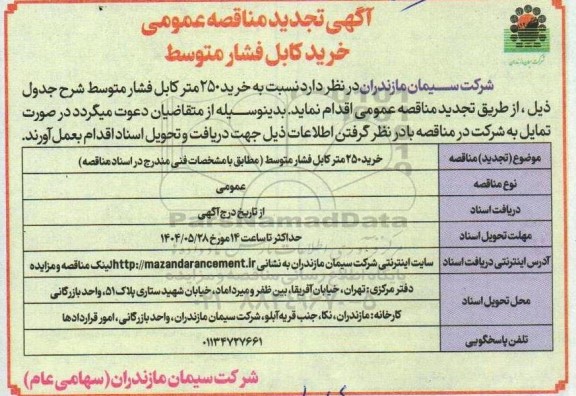 آگهی تجدید مناقصه عمومی
خرید کابل فشار متوسط
شرکت سیمان مازندران
شرکت سیمان مازندران در نظر دارد نسبت به خرید ۲۵۰ متر کابل فشار متوسط شرح جدول
ذیل ، از طریق تجدید مناقصه عمومی اقدام نماید. بدینوسیله از متقاضیان دعوت میگردد در صورت
تمایل به شرکت در مناقصه با در نظر گرفتن اطلاعات ذیل جهت دریافت و تحویل اسناد اقدام بعمل آورند.
موضوع (تجدید) مناقصه خرید ۲۵۰ متر کابل فشار متوسط (مطابق با مشخصات فنی مندرج در اسناد مناقصه)
نوع مناقصه عمومی
دریافت اسناد از تاریخ درج آگهی
مهلت تحویل اسناد حداکثر تا ساعت ۱۴ مورخ ۱۴۰۴/۰۵/۲۸
آدرس اینترنتی دریافت اسناد سایت اینترنتی شرکت سیمان مازندران به نشانی http://mazandarancement.ir لینک مناقصه و مزایده
محل تحویل اسناد دفتر مرکزی: تهران، خیابان آفریقا، بین ظفر و میرداماد، خیابان شهید ستاری پلاک ۵۱، واحد بازرگانی
کارخانه: مازندران ، نکا، جنب قریه آبلو، شرکت سیمان مازندران ، واحد بازرگانی ، امور قراردادها
تلفن پاسخگویی ۰۱۱۳۴۷۲۷۶۶۱
شرکت سیمان مازندران (سهامی عام)
ParsNamadData